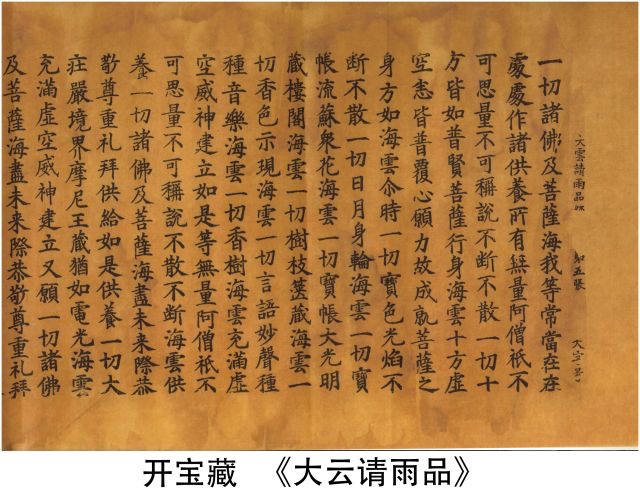 大雲請雨品
五張
一切諸佛及菩薩海我等常當在在
處處作諸供養所有無量阿僧祇不
可思量不可稱說不断不散一切十
方皆如普賢菩薩行身海雲十方虛
空悉皆普覆心願力故成就菩薩之
身方如海雲尒時一切寶色光焰不
断不散一切日月身輪海雲一切寶
帳流蘇衆花海雲一切寶帳大光明
藏樓閣海雲一切樹枝篋藏海雲一
切香色示現海雲一切言語妙聲種
種音樂海雲一切香樹海雲充滿虛
空威神建立如是等無量阿僧祇不
可思量不可稱說不散不断海雲供
養一切諸佛及菩薩海盡未来際恭
敬尊重礼拜供給如是供養一切大
莊嚴境界摩尼王藏猶如電光海雲
充滿虛空威神建立又願一切諸佛
及菩薩海盡未来際恭敬尊重礼拜
开宝藏 《大云请雨品》